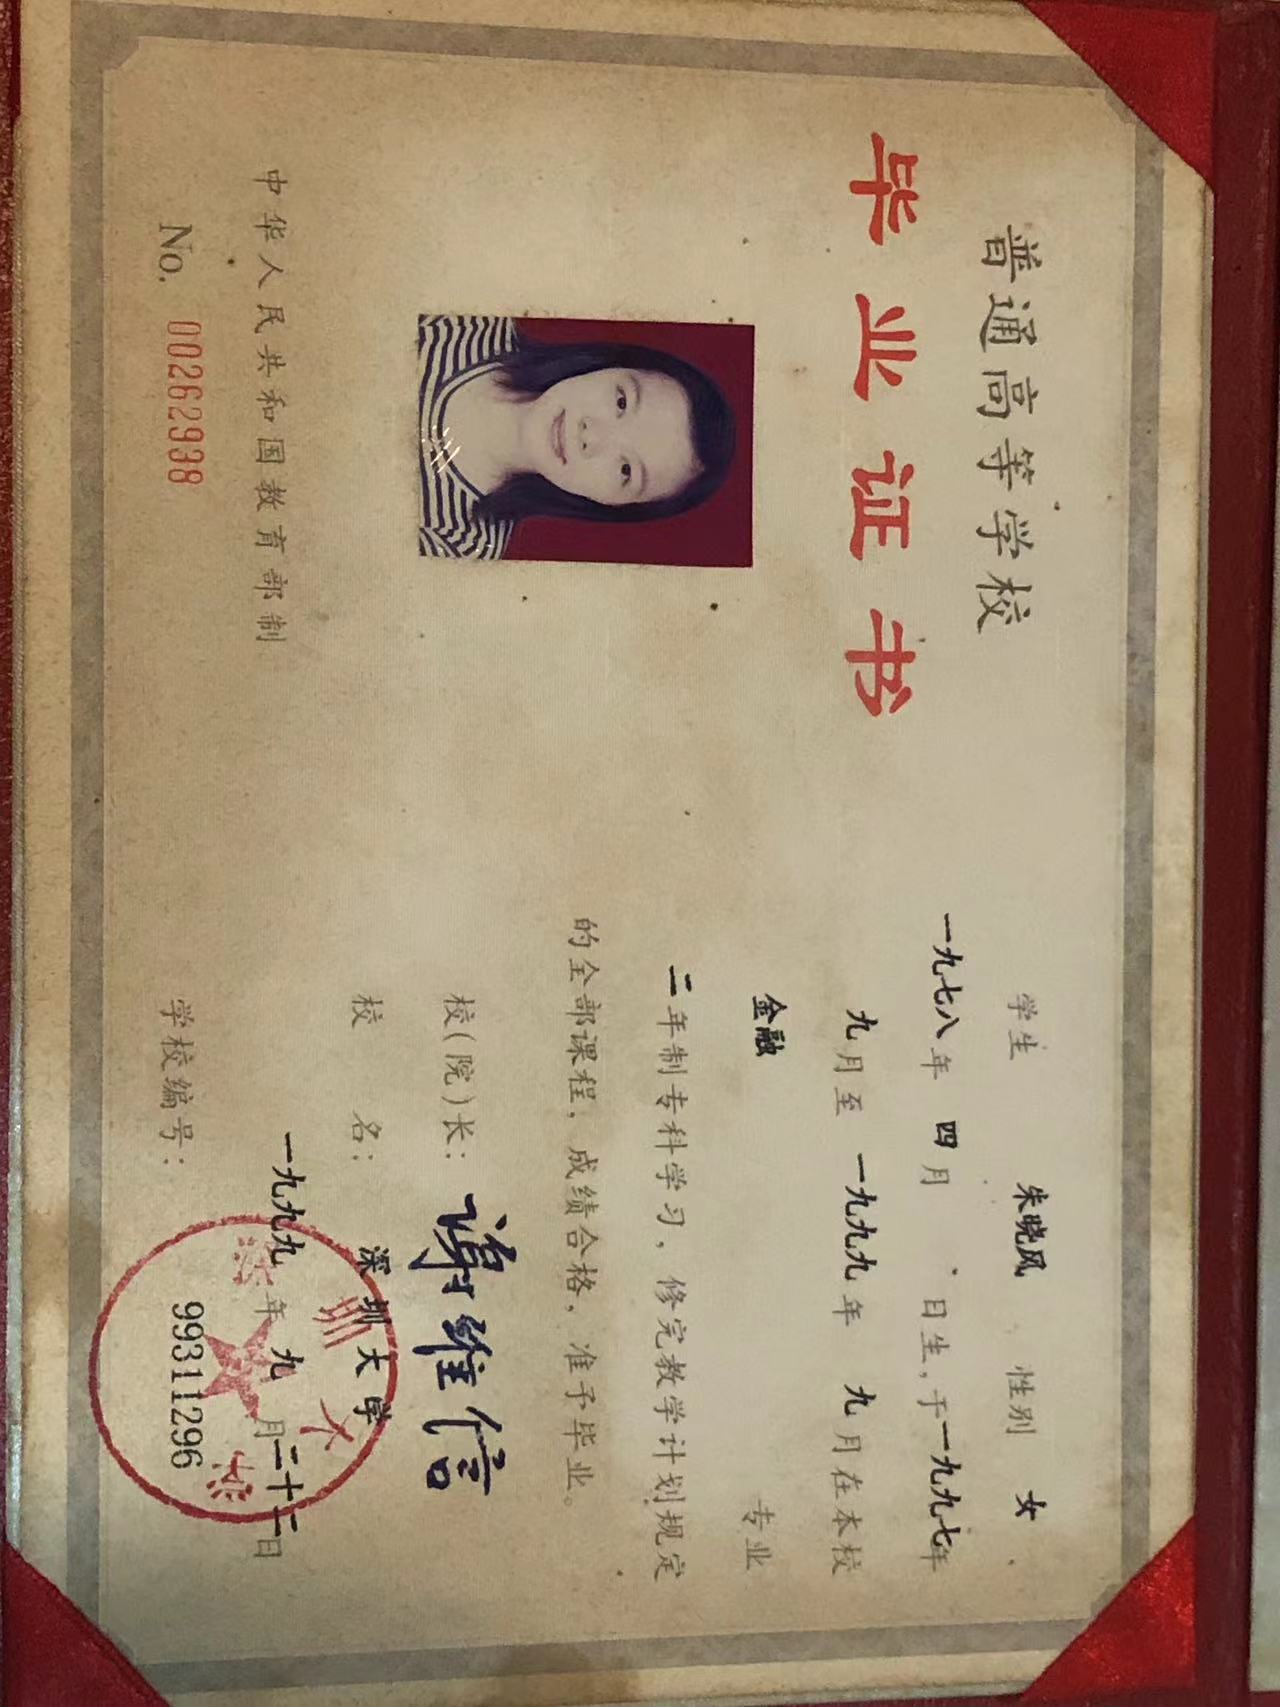 普通高等学校
毕业证书
中华人民共和国教育部制
No. 00262938
学生 朱晓风 性别 女
一九七八年 四月 日生,于一九九七年
九月至 一九九九年 九月在本校
金融 专业
二年制专科学习,修完教学计划规定
的全部课程,成绩合格,准予毕业。
校(院)长: 谢维信
校 名: 深圳大学
一九九九年九月二十二日
学校编号: 99311296